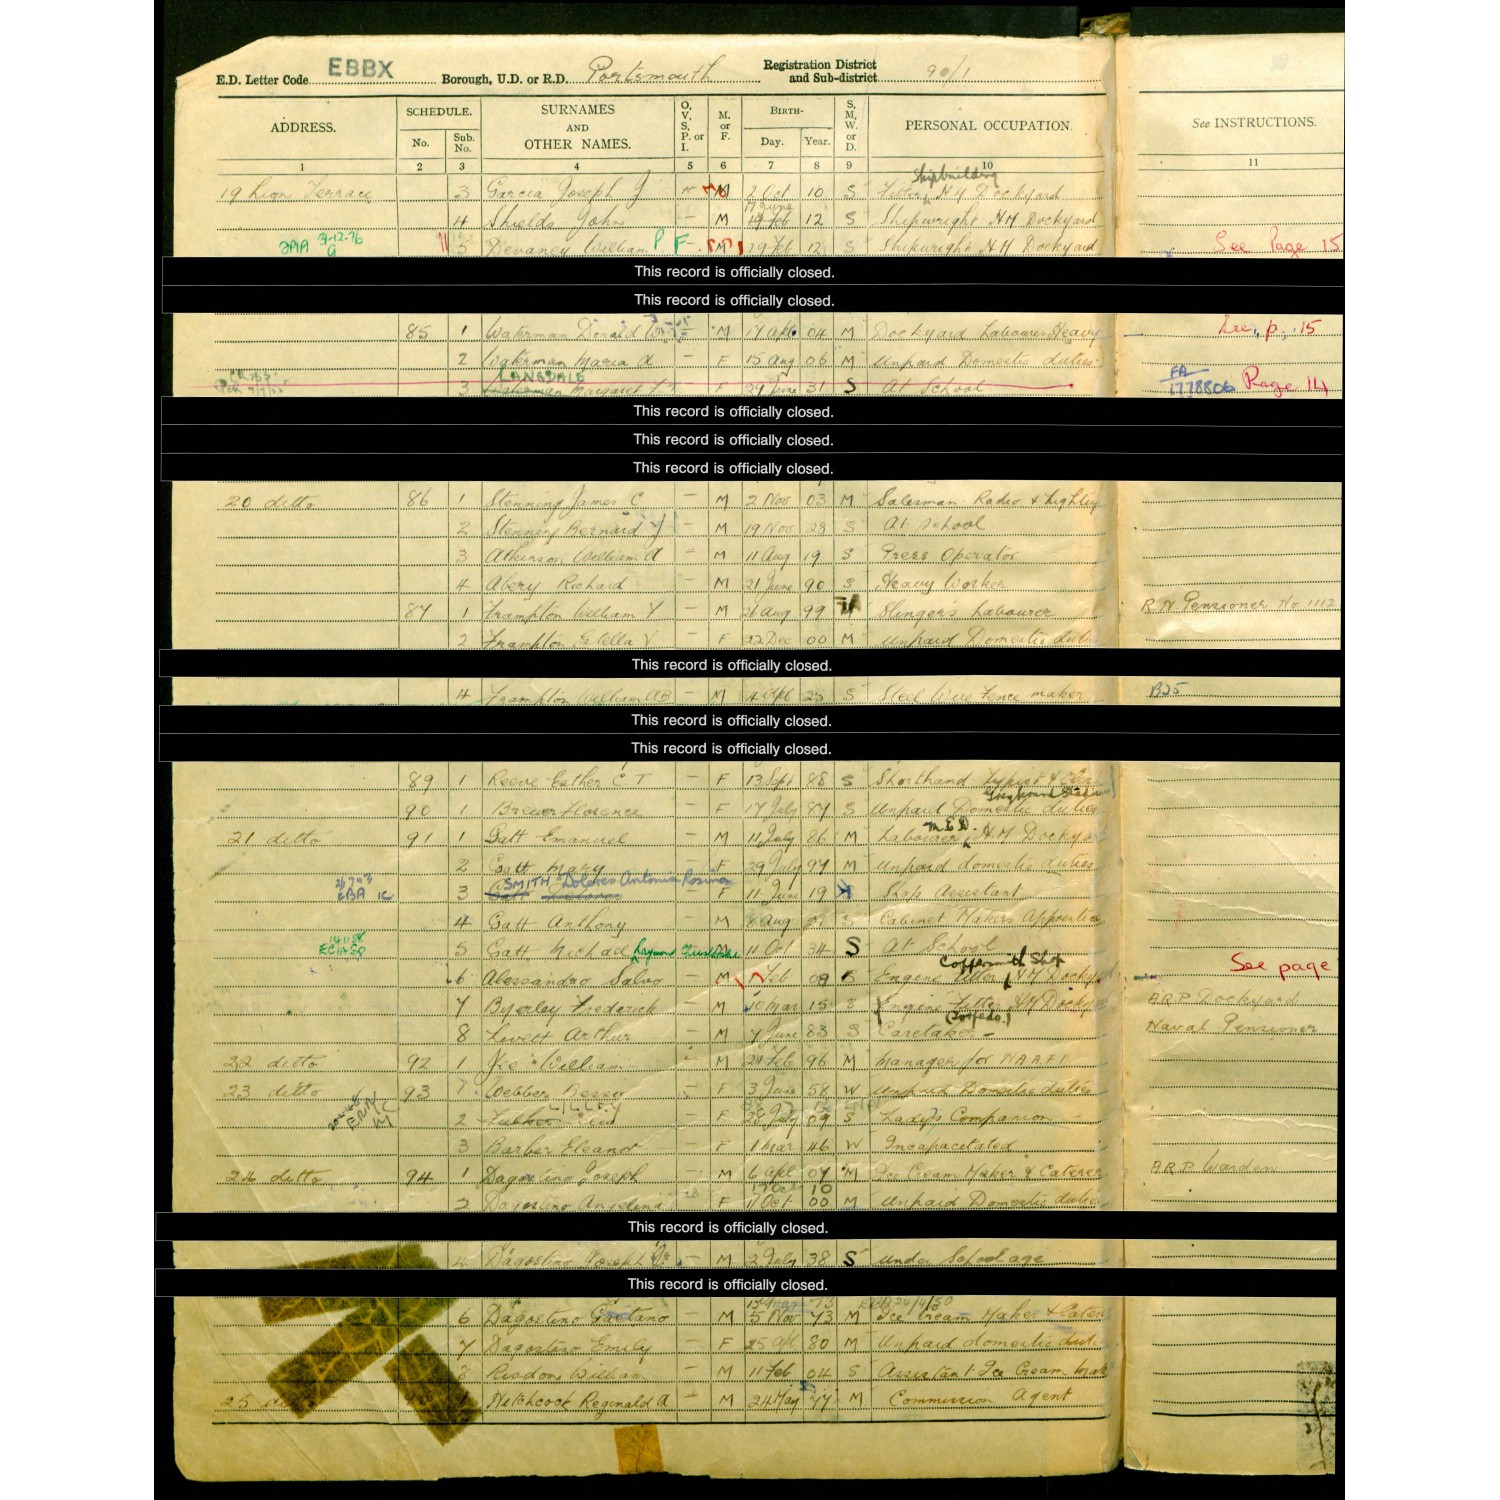 E.D. Letter Code EBBX Borough, U.D. or R.D. Portsmouth Registration District and Sub-district 90/1
ADDRESS. SCHEDULE. No. Sub. No. SURNAMES AND OTHER NAMES. O, V, S, P, or I. M. or F. BIRTH- Day. Year. S, M, W, or D. PERSONAL OCCUPATION. See INSTRUCTIONS.
1 2 3 4 5 6 7 8 9 10 11
Shipbuilding
19 Lion Terrace 3 Garcia Joseph J M 2 Oct 10 S Fitter, HM Dockyard
17 June
4 Shields John - M 19 Feb 12 S Shipwright HM Dockyard
5 Devaney William P F M 19 Feb 12 S Shipwright HM Dockyard See Page 15
This record is officially closed.
This record is officially closed.
85 1 Waterman Donald M 17 Apl 04 M Dockyard Labourer Heavy See p. 15
2 Waterman Maria A - F 15 Aug 06 M Unpaid Domestic duties
LANSDALE
3 Waterman Margaret F 29 June 31 S At School FA 1778806 Page 14
This record is officially closed.
This record is officially closed.
This record is officially closed.
20 ditto 86 1 Stenning James C - M 2 Nov 03 M Salesman Radio & Lighting
2 Stenning Bernard J - M 19 Nov 28 S At School
3 Atkinson William A - M 11 Aug 19 S Press Operator
4 Abery Richard - M 21 June 90 S Heavy Worker
87 1 Frampton William F - M 26 Aug 99 M Slinger's Labourer R.N. Pensioner No 1112
2 Frampton Estella V - F 22 Dec 00 M Unpaid Domestic duti
This record is officially closed.
4 Frampton William AB - M 4 Apl 25 S Steel Wire Fence maker B25
This record is officially closed.
This record is officially closed.
89 1 Reeve Esther C T - F 13 Sept 88 S Shorthand Typist & Cler
90 1 Brewer Florence - F 7 July 87 S Unpaid Domestic duties
M.E.D.
21 ditto 91 1 Gatt Emanuel - M 11 July 86 M Labourer, H.M Dockyar
2 Gatt Mary F 29 July 97 M Unpaid domestic duties
SMITH Dolores Antonia Rosina
3 Gatt F 11 June 19 Shop Assistant
4 Gatt Anthony M 8 Aug S Cabinet Makers Apprentice
5 Gatt Michael Raymond M 11 Oct 34 S At School
Coppersmith Shop See page
6 Alessandro Salvo M Feb 09 S Engine Fitter HM Docky
7 Byerley Frederick M 10 Mar 15 S Engine Fitter HM Docky A.R.P. Dockyard
(Torpedo.)
8 Lovett Arthur M 7 June 83 S Caretaker - Naval Pensioner
22 ditto 92 1 William M 24 Feb 96 M Manager for N.A.A.F.I.
23 ditto 93 1 Webber Bessy F 3 June 54 W Unpaid Domestic duties
LILLEY
2 F 26 July 09 S Lady's Companion
3 Barber Eleanor F 1 Mar 46 W Incapacitated
24 ditto 94 1 Dagostino Joseph M 6 Apl 07 M Ice Cream Maker & Caterer A.R.P. Warden
10
2 Dagostino Angelina F 11 Oct 00 M Unpaid Domestic dutie
This record is officially closed.
4 Dagostino Joseph Jr - M 2 July 38 S under School age
This record is officially closed.
24/4/50
6 Dagostino Gaetano M 5 Nov 73 M Ice Cream Maker & Cater
7 Dagostino Emily F 25 Apl 80 M Unpaid domestic duti
8 Risdon William M 11 Feb 04 S Assistant Ice Cream Mak
25 Hitchcock Reginald A - M 24 May 77 M Commission Agent